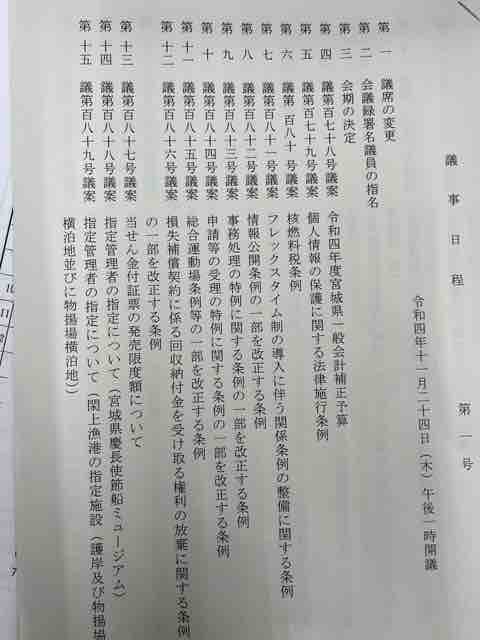 議事日程
第一号
令和四年十一月二十四日（木）午後一時開議
第一 議席の変更
第二 会議録署名議員の指名
第三 会期の決定
第四 議第百七十八号議案 令和四年度宮城県一般会計補正予算
第五 議第百七十九号議案 個人情報の保護に関する法律施行条例
第六 議第百八十号議案 核燃料税条例
第七 議第百八十一号議案 フレックスタイム制の導入に伴う関係条例の整備に関する条例
第八 議第百八十二号議案 情報公開条例の一部を改正する条例
第九 議第百八十三号議案 事務処理の特例に関する条例の一部を改正する条例
第十 議第百八十四号議案 申請等の受理の特例に関する条例の一部を改正する条例
第十一 議第百八十五号議案 総合運動場条例等の一部を改正する条例
第十二 議第百八十六号議案 損失補償契約に係る回収納付金を受け取る権利の放棄に関する条例
の一部を改正する条例
第十三 議第百八十七号議案 当せん金付証票の発売限度額について
第十四 議第百八十八号議案 指定管理者の指定について（宮城県慶長使節船ミュージアム）
第十五 議第百八十九号議案 指定管理者の指定について（閖上漁港の指定施設（護岸及び物揚場
横泊地並びに物揚場横泊地））